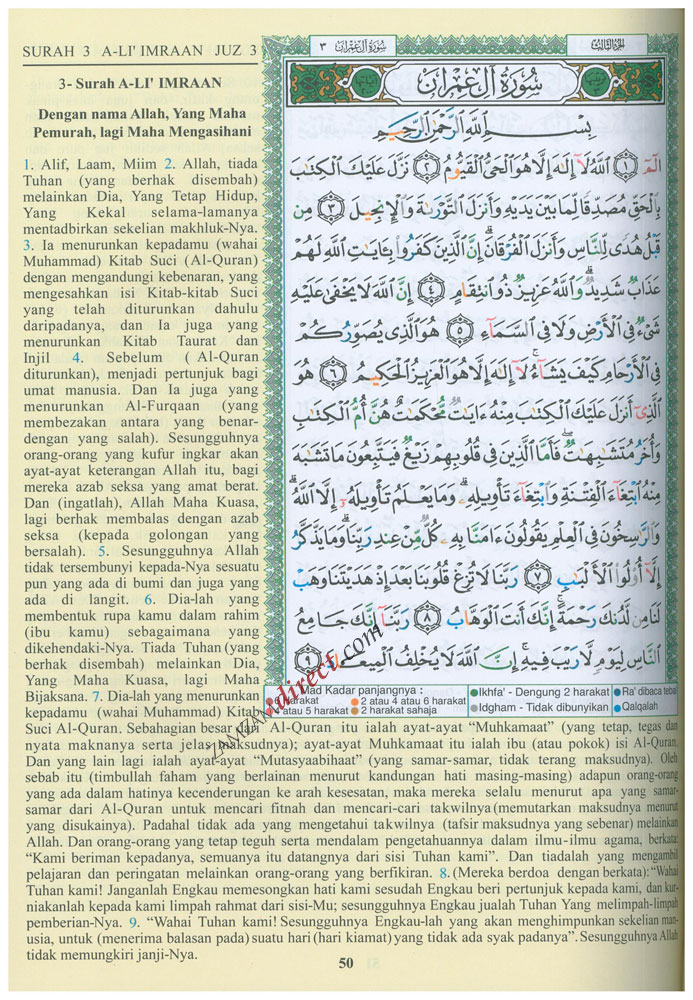 SURAH 3 A-LI' IMRAAN JUZ 3
3- Surah A-LI' IMRAAN
Dengan nama Allah, Yang Maha
Pemurah, lagi Maha Mengasihani
1. Alif, Laam, Miim 2. Allah, tiada
Tuhan (yang berhak disembah)
melainkan Dia, Yang Tetap Hidup,
Yang Kekal selama-lamanya
mentadbirkan sekelian makhluk-Nya.
3. Ia menurunkan kepadamu (wahai
Muhammad) Kitab Suci (Al-Quran)
dengan mengandungi kebenaran, yang
mengesahkan isi Kitab-kitab Suci
yang telah diturunkan dahulu
daripadanya, dan Ia juga yang
menurunkan Kitab Taurat dan
Injil 4. Sebelum ( Al-Quran
diturunkan), menjadi pertunjuk bagi
umat manusia. Dan Ia juga yang
menurunkan Al-Furqaan (yang
membezakan antara yang benar-
dengan yang salah). Sesungguhnya
orang-orang yang kufur ingkar akan
ayat-ayat keterangan Allah itu, bagi
mereka azab seksa yang amat berat.
Dan (ingatlah), Allah Maha Kuasa,
lagi berhak membalas dengan azab
seksa (kepada golongan yang
bersalah). 5. Sesungguhnya Allah
tidak tersembunyi kepada-Nya sesuatu
pun yang ada di bumi dan juga yang
ada di langit. 6. Dia-lah yang
membentuk rupa kamu dalam rahim
(ibu kamu) sebagaimana yang
dikehendaki-Nya. Tiada Tuhan (yang
berhak disembah) melainkan Dia,
Yang Maha Kuasa, lagi Maha
Bijaksana. 7. Dia-lah yang menurunkan
kepadamu (wahai Muhammad) Kitab
الجزء الثالث
سورة آل عمران ٣
سُورَةُ آلِ عِمْرَانَ
بِسْمِ ٱللَّهِ ٱلرَّحْمَٰنِ ٱلرَّحِيمِ
الٓمٓ ١ ٱللَّهُ لَآ إِلَٰهَ إِلَّا هُوَ ٱلْحَىُّ ٱلْقَيُّومُ ٢ نَزَّلَ عَلَيْكَ ٱلْكِتَٰبَ
بِٱلْحَقِّ مُصَدِّقًا لِّمَا بَيْنَ يَدَيْهِ وَأَنزَلَ ٱلتَّوْرَىٰةَ وَٱلْإِنجِيلَ ٣ مِن
قَبْلُ هُدًى لِّلنَّاسِ وَأَنزَلَ ٱلْفُرْقَانَ ۗ إِنَّ ٱلَّذِينَ كَفَرُوا۟ بِـَٔايَٰتِ ٱللَّهِ لَهُمْ
عَذَابٌ شَدِيدٌ ۗ وَٱللَّهُ عَزِيزٌ ذُو ٱنتِقَامٍ ٤ إِنَّ ٱللَّهَ لَا يَخْفَىٰ عَلَيْهِ
شَىْءٌ فِى ٱلْأَرْضِ وَلَا فِى ٱلسَّمَآءِ ٥ هُوَ ٱلَّذِى يُصَوِّرُكُمْ
فِى ٱلْأَرْحَامِ كَيْفَ يَشَآءُ ۚ لَآ إِلَٰهَ إِلَّا هُوَ ٱلْعَزِيزُ ٱلْحَكِيمُ ٦ هُوَ
ٱلَّذِىٓ أَنزَلَ عَلَيْكَ ٱلْكِتَٰبَ مِنْهُ ءَايَٰتٌ مُّحْكَمَٰتٌ هُنَّ أُمُّ ٱلْكِتَٰبِ
وَأُخَرُ مُتَشَٰبِهَٰتٌ ۖ فَأَمَّا ٱلَّذِينَ فِى قُلُوبِهِمْ زَيْغٌ فَيَتَّبِعُونَ مَا تَشَٰبَهَ
مِنْهُ ٱبْتِغَآءَ ٱلْفِتْنَةِ وَٱبْتِغَآءَ تَأْوِيلِهِۦ ۗ وَمَا يَعْلَمُ تَأْوِيلَهُۥٓ إِلَّا ٱللَّهُ ۗ
وَٱلرَّٰسِخُونَ فِى ٱلْعِلْمِ يَقُولُونَ ءَامَنَّا بِهِۦ كُلٌّ مِّنْ عِندِ رَبِّنَا ۗ وَمَا يَذَّكَّرُ
إِلَّآ أُو۟لُوا۟ ٱلْأَلْبَٰبِ ٧ رَبَّنَا لَا تُزِغْ قُلُوبَنَا بَعْدَ إِذْ هَدَيْتَنَا وَهَبْ
لَنَا مِن لَّدُنكَ رَحْمَةً ۚ إِنَّكَ أَنتَ ٱلْوَهَّابُ ٨ رَبَّنَآ إِنَّكَ جَامِعُ
ٱلنَّاسِ لِيَوْمٍ لَّا رَيْبَ فِيهِ ۚ إِنَّ ٱللَّهَ لَا يُخْلِفُ ٱلْمِيعَادَ ٩
Mad Kadar panjangnya :
harakat 2 atau 4 atau 6 harakat
4 atau 5 harakat 2 harakat sahaja
Ikhfa' - Dengung 2 harakat
Idgham - Tidak dibunyikan
Ra' dibaca teba
Qalqalah
Suci Al-Quran. Sebahagian besar Al-Quran itu ialah ayat-ayat “Muhkamaat” (yang tetap, tegas dan
nyata maknanya serta jelas maksudnya); ayat-ayat Muhkamaat itu ialah ibu (atau pokok) isi Al-Quran.
Dan yang lain lagi ialah ayat-ayat “Mutasyaabihaat” (yang samar-samar, tidak terang maksudnya). Oleh
sebab itu (timbullah faham yang berlainan menurut kandungan hati masing-masing) adapun orang-orang
yang ada dalam hatinya kecenderungan ke arah kesesatan, maka mereka selalu menurut apa yang samar-
samar dari Al-Quran untuk mencari fitnah dan mencari-cari takwilnya (memutarkan maksudnya menurut
yang disukainya). Padahal tidak ada yang mengetahui takwilnya (tafsir maksudnya yang sebenar) melainkan
Allah. Dan orang-orang yang tetap teguh serta mendalam pengetahuannya dalam ilmu-ilmu agama, berkata:
“Kami beriman kepadanya, semuanya itu datangnya dari sisi Tuhan kami”. Dan tiadalah yang mengambil
pelajaran dan peringatan melainkan orang-orang yang berfikiran. 8. (Mereka berdoa dengan berkata): “Wahai
Tuhan kami! Janganlah Engkau memesongkan hati kami sesudah Engkau beri pertunjuk kepada kami, dan kur-
niakanlah kepada kami limpah rahmat dari sisi-Mu; sesungguhnya Engkau jualah Tuhan Yang melimpah-limpah
pemberian-Nya. 9. “Wahai Tuhan kami! Sesungguhnya Engkau-lah yang akan menghimpunkan sekelian man-
usia, untuk (menerima balasan pada) suatu hari (hari kiamat) yang tidak ada syak padanya”. Sesungguhnya Allah
tidak memungkiri janji-Nya.
50